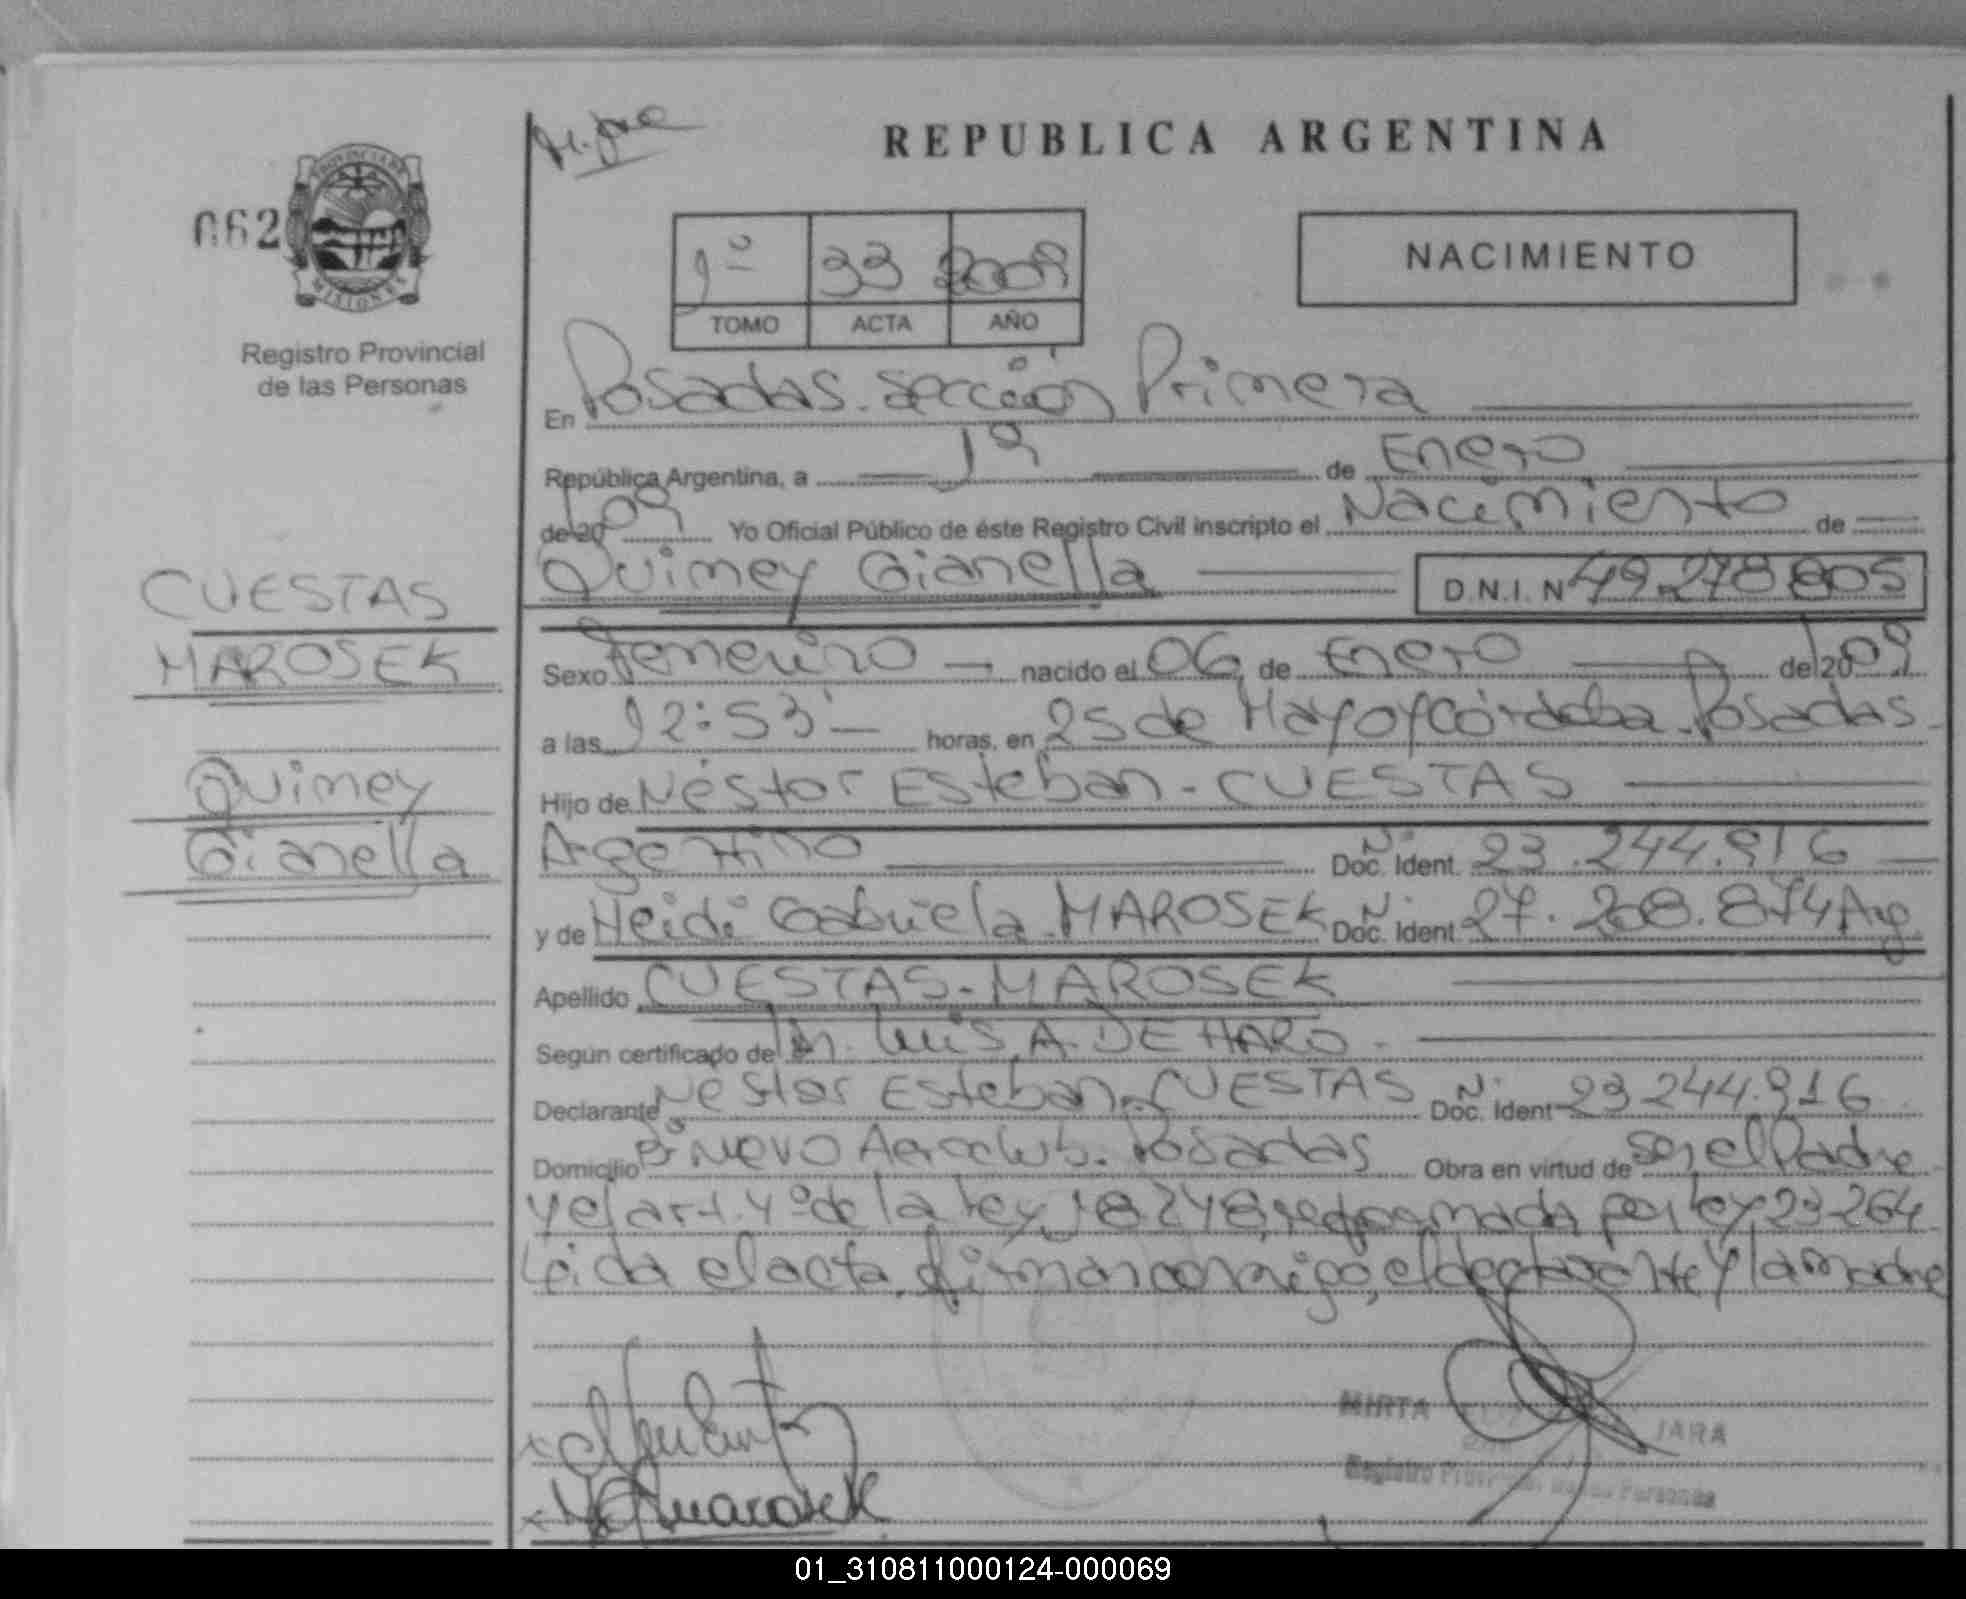 REPUBLICA ARGENTINA
PROVINCIA DE
MISIONES
062
NACIMIENTO
1º 33 2009
TOMO ACTA AÑO
Registro Provincial
de las Personas
En Posadas. Sección Primera
República Argentina, a 19 de Enero
de 2009 Yo Oficial Público de éste Registro Civil inscripto el Nacimiento de
Quimey Gianella D.N.I. Nº 49.278.805
CUESTAS
MAROSEK
Quimey
Gianella
Sexo Femenino nacido el 06 de Enero de 2009
a las 12:53 horas, en 25 de Mayo y Córdoba. Posadas
Hijo de Néstor Esteban - CUESTAS
Argentino Doc. Ident. Nº 23.244.916
y de Heidi Gabriela MAROSEK Doc. Ident. Nº 27.208.874 Arg.
Apellido CUESTAS - MAROSEK
Según certificado de Luis A. DE HARO.
Declarante Néstor Esteban - CUESTAS Doc. Ident Nº 23.244.916
Domicilio Bº Nuevo Aeroclub. Posadas Obra en virtud de ser el Padre
y el art. 4º de la ley 18.248, reformada por ley 23.264
Leida el acta, firman conmigo, el declarante y la madre
MIRTA JARA
Registro Provincial de las Personas
01_310811000124-000069